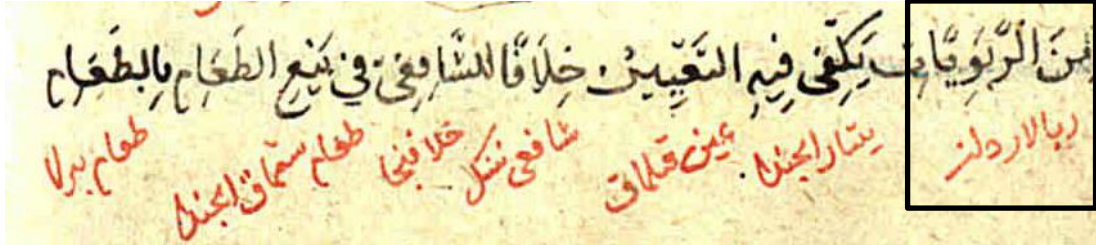 مِنَ الرِّبَوِيَّاتِ يَكْفِى فِيهِ التَّعْيِينُ خِلَافًا لِلشَّافِعِىِّ فِي بَيْعِ الطَّعَامِ بِالطَّعَامِ
ربالاردانز يتار ايجنده عين قلماق شافعى ننك خلافيجا طعام ستماق ايجنده طعام بيرلا